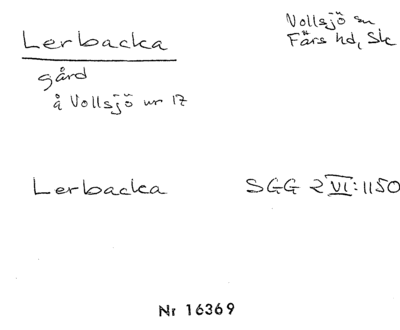 Lerbacka
Vollsjö sn
Färs hd, Sk
gård
å Vollsjö nr 17
Lerbacka
SGG 2 VI:1150
Nr 16369